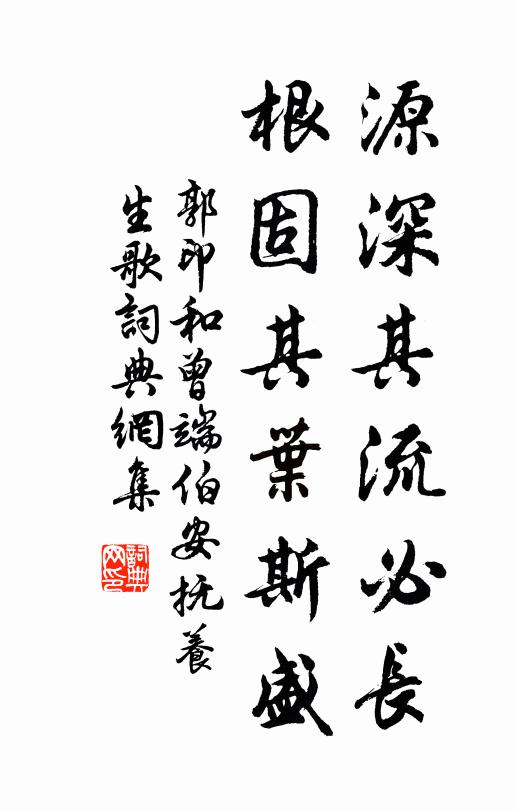 源深其流必長
根固其葉斯盛
郭印和曾端伯安抚養
生歌詞典網集
詞典网印